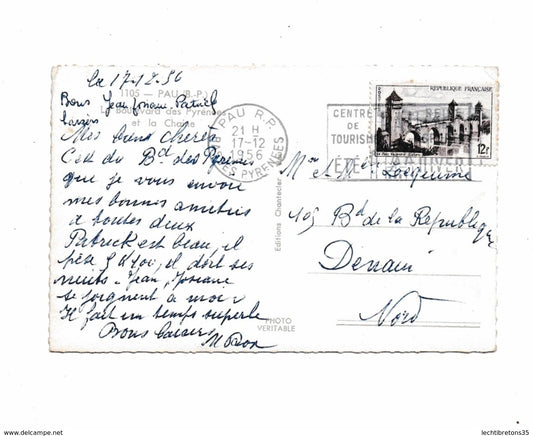 Le 17.12.56
1105 - PAU (B.-P.)
Bons Jean Josiane Patrick
Le Boulevard des Pyrénées
baisers
et la Chaîne
Mes biens chères
C'est du Bd des Pyrénées
que je vous envoie
mes bonnes amitiés
à toutes deux
Patrick est beau, il
pèse, il dort ses
nuits. Jean, Josiane
se joignent à moi
Il fait un temps superbe
Bons baisers
PAU R.P.
21 H
17-12
1956
BSES PYRENEES
CENTRE
DE
TOURISME
ÉTÉ
REPUBLIQUE FRANÇAISE
POSTES
12F
Editions Chantecler
PHOTO
VERITABLE
Mme et Mlle Lacquement
105 Bd de la République
Denain
Nord
lechtibretons35